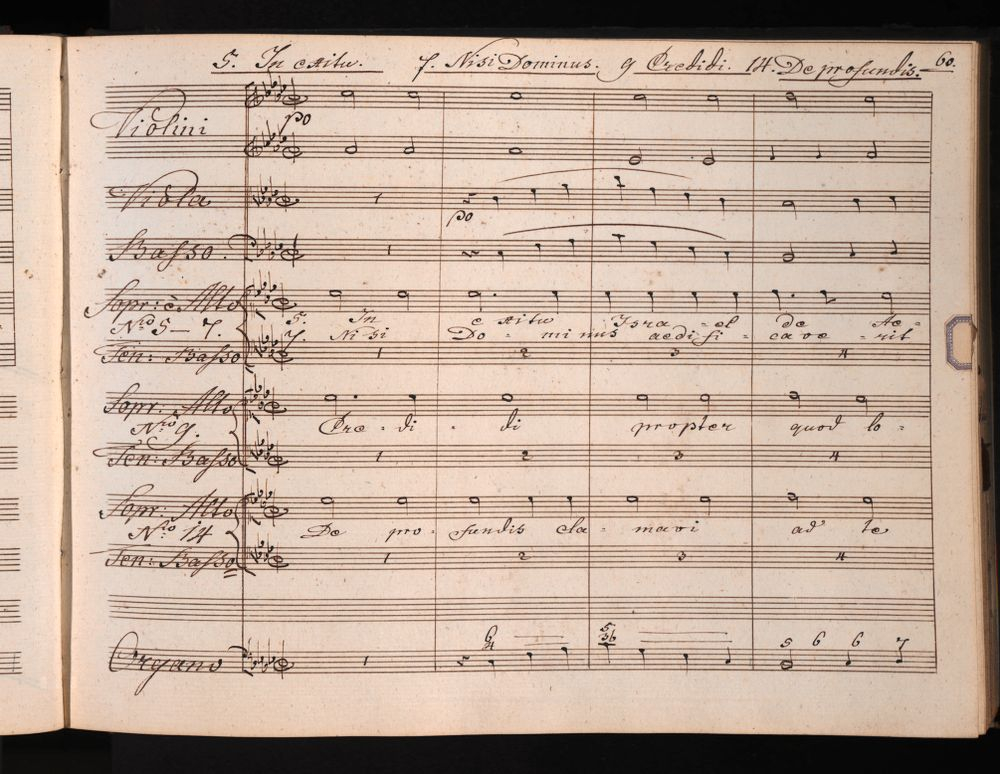 5. In exitu. 7. Nisi Dominus. 9 Credidi. 14. De profundis. 60.
Violini
po
Viola 1
po
Basso. 1
Sopr: è Alto
5. In exitu Isra - el de Ae -
Nro 5 - 7. 7. Nisi Do - minus aedifi - cave - rit
Ten: Basso 1 2 3 4
Sopr: Alto
Nro 9. Cre - di - di propter quod lo -
Ten: Basso 1 2 3 4
Sopr: Alto
Nro 14 De pro - fundis cla - mavi ad te
Ten: Basso 1 2 3 4
6 5
4 3b 5 6 6 7
Organo 1